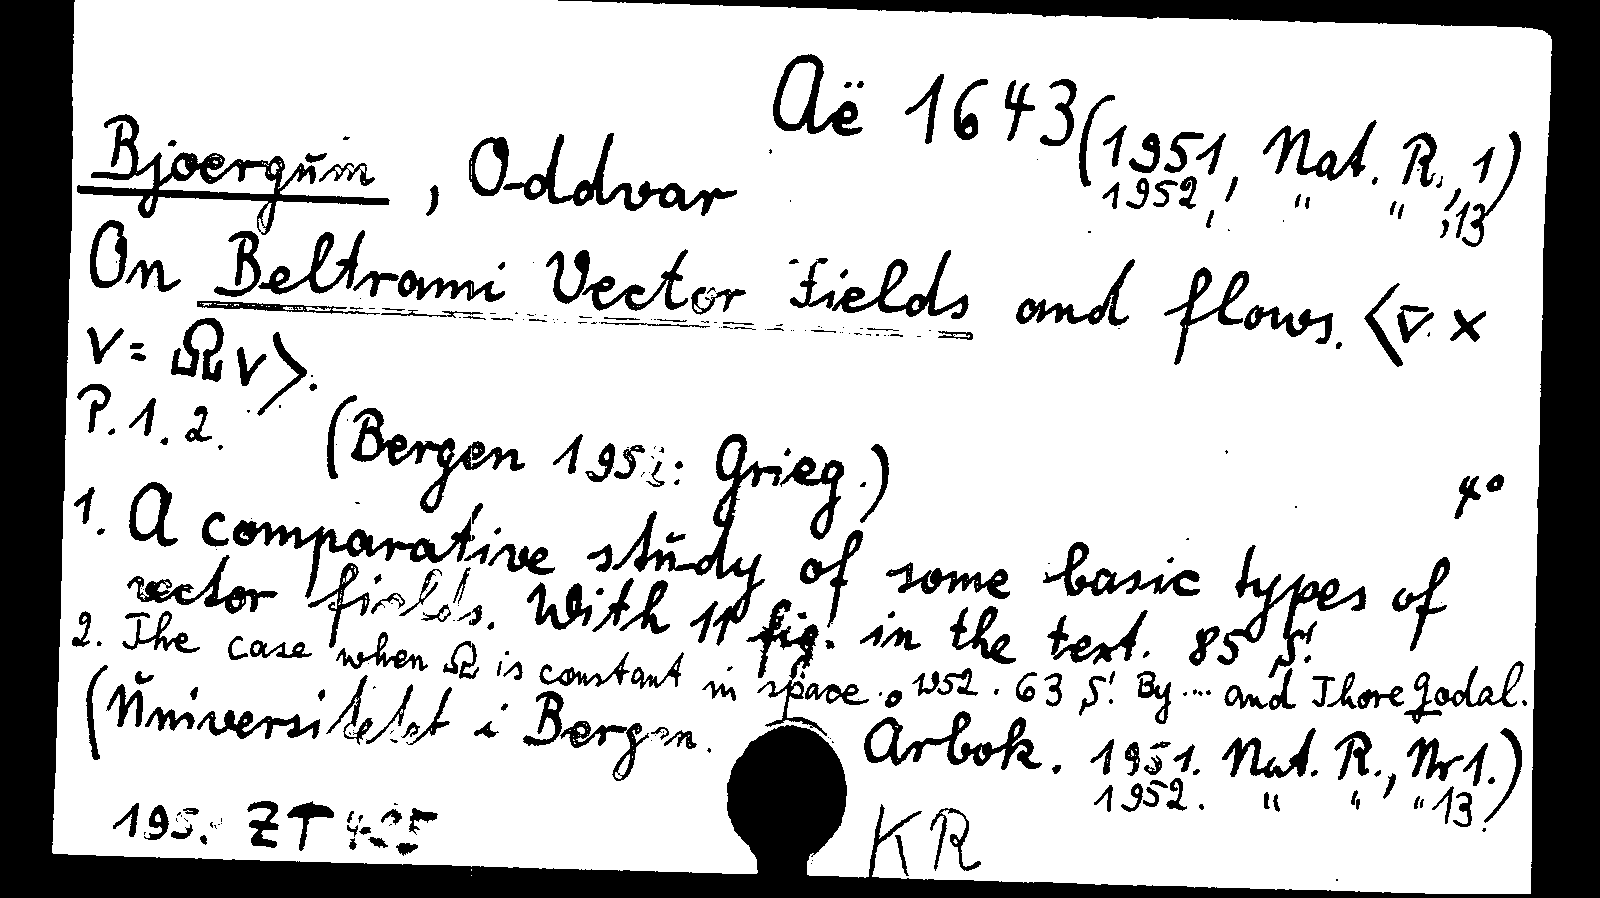 Aë 1643 (1951, Nat. R., 1)
1952, " " , 13
Bjoergŭm, Oddvar
On Beltrami Vector Fields and flows. <∇ ×
v = Ω v>.
P. 1. 2.
(Bergen 195 : Grieg.)
4°
1. A comparative stŭdy of some basic types of
vector fields. With 11 fig. in the text. 85 S.
2. The case when Ω is constant in space. 1952. 63 S. By .... and Thore Godal.
(Ŭniversitetet i Bergen. Arbok. 1951. Nat. R., Nr 1.)
1952. " " " 13.
195 . ZT 425
KR